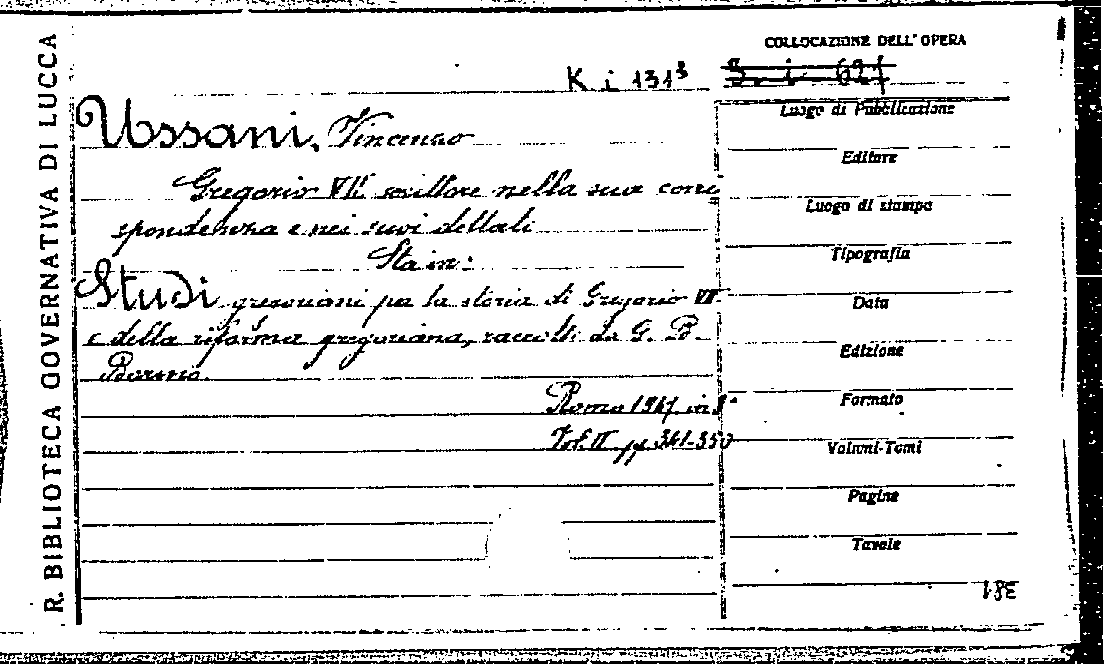 R. BIBLIOTECA GOVERNATIVA DI LUCCA
COLLOCAZIONE DELL'OPERA
K i 131³ S. i 627
Ussani, Vincenzo
Gregorio VII scrittore nella sua corri
spondenza e nei suoi dettati
Sta in:
Studi gregoriani per la storia di Gregorio VII
e della riforma gregoriana, raccolti da G. B.
Borino.
Roma 1947 in 8°
Vol. II pp 341-350
Luogo di Pubblicazione
Editore
Luogo di stampa
Tipografia
Data
Edizione
Formato
Volumi-Tomi
Pagine
Tavole